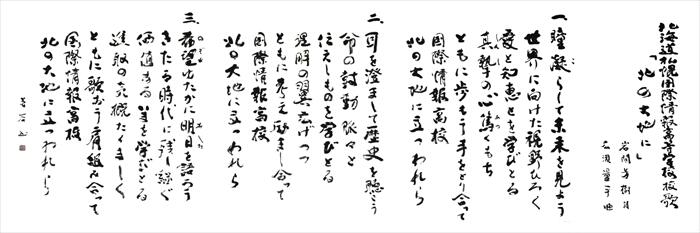 北海道札幌国際情報高等学校校歌
「北の大地に」
岩間芳樹 詩
広瀬量平 曲
一、瞳凝らして未来を見よう
世界に向けた視野ひろく
愛と知恵とを学びとる
真摯の心篤くもち
ともに歩もう手をとり合って
国際情報高校
北の大地に立つわれら
二、耳を澄まして歴史を聴こう
命の鼓動脈々と
伝えしものを学びとる
理解の翼広げつつ
ともに考え励まし合って
国際情報高校
北の大地に立つわれら
三、希望ゆたかに明日を語ろう
きたる時代に残し継ぐ
価値あるいまを学びとる
進取の気概たくましく
ともに歌おう肩組み合って
国際情報高校
北の大地に立つわれら